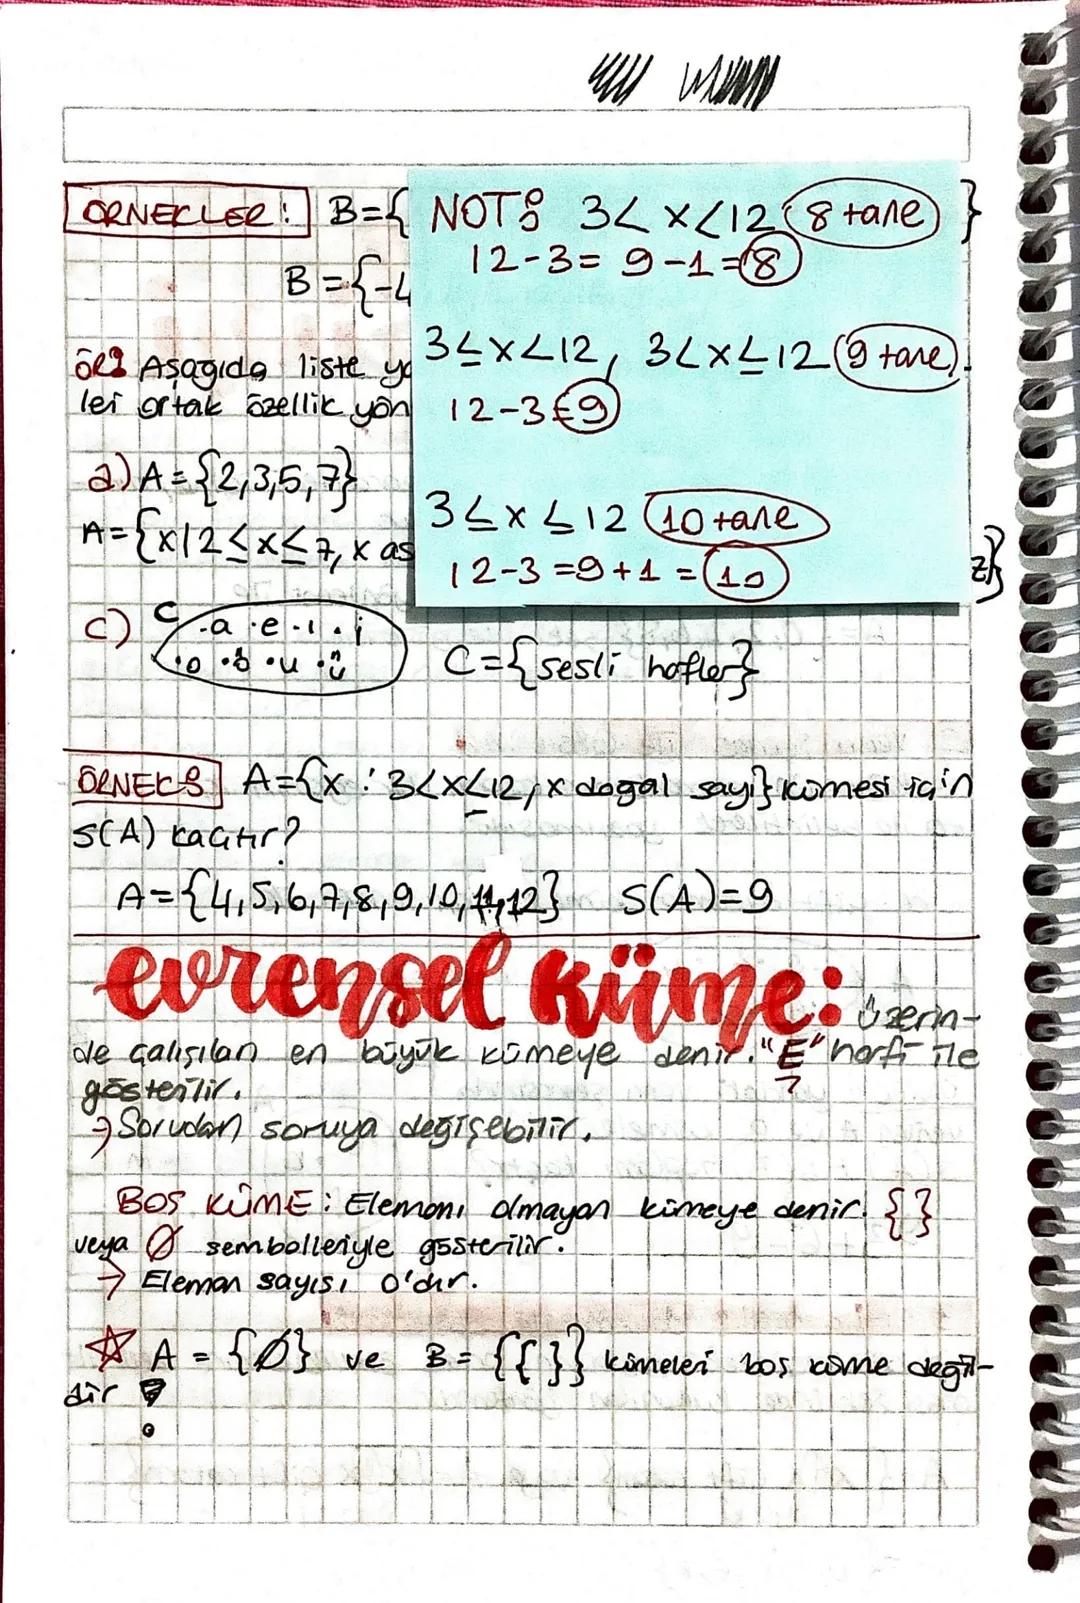 ÖRNEKLER: B={ }
B={-4
NOT: 3< x<12 8 tane
12-3= 9-1=8
3≤x<12, 3<x≤12 9 tane
12-3=9
3≤x≤12 10 tane
12-3=9+1=10
ÖR: Aşağıda liste yö
leri ortak özellik yön
a) A={2,3,5,7}
A={x|2≤x≤7, x as z}
c) C .a .e .ı .i
.o .ö .u .ü
C={sesli harfler}
ÖRNEK: A={x : 3<x≤12, x doğal sayı} kümesi için
S(A) kaçtır?
A={4,5,6,7,8,9,10,11,12} S(A)=9
evrensel küme: üzerin-
de çalışılan en büyük kümeye denir. "E" harfi ile
gösterilir.
→ Sorudan soruya değişebilir.
BOŞ KÜME: Elemanı olmayan kümeye denir. { }
veya Ø sembolleriyle gösterilir.
→ Eleman sayısı 0'dır.
☆ A = {Ø} ve B = {{ }} kümeleri boş küme değil-
dir !